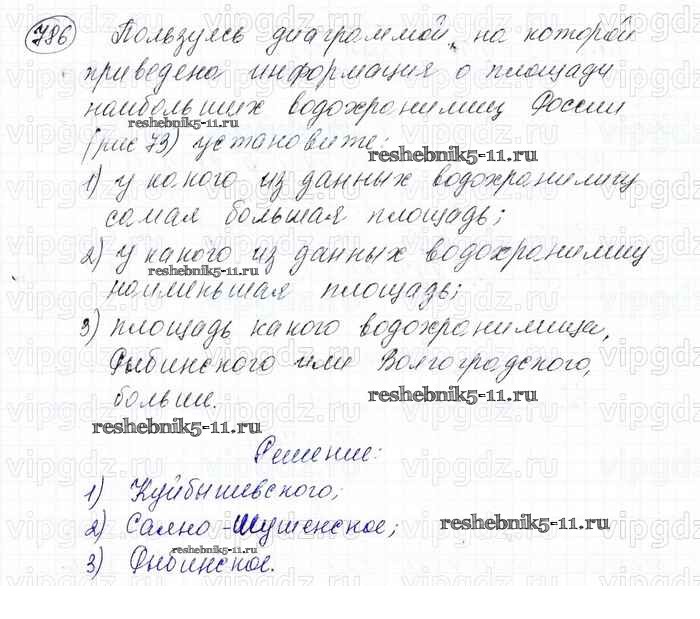 786 Пользуясь диаграммой, на которой
приведена информация о площади
наибольших водохранилищ России
(рис 73) установите:
1) у какого из данных водохранилищ
самая большая площадь;
2) у какого из данных водохранилищ
наименьшая площадь;
3) площадь какого водохранилища,
Рыбинского или Волгоградского,
больше.
Решение:
1) Куйбышевского;
2) Саяно-Шушенское;
3) Рыбинское.
reshebnik5-11.ru
reshebnik5-11.ru
reshebnik5-11.ru
reshebnik5-11.ru
reshebnik5-11.ru
reshebnik5-11.ru
reshebnik5-11.ru